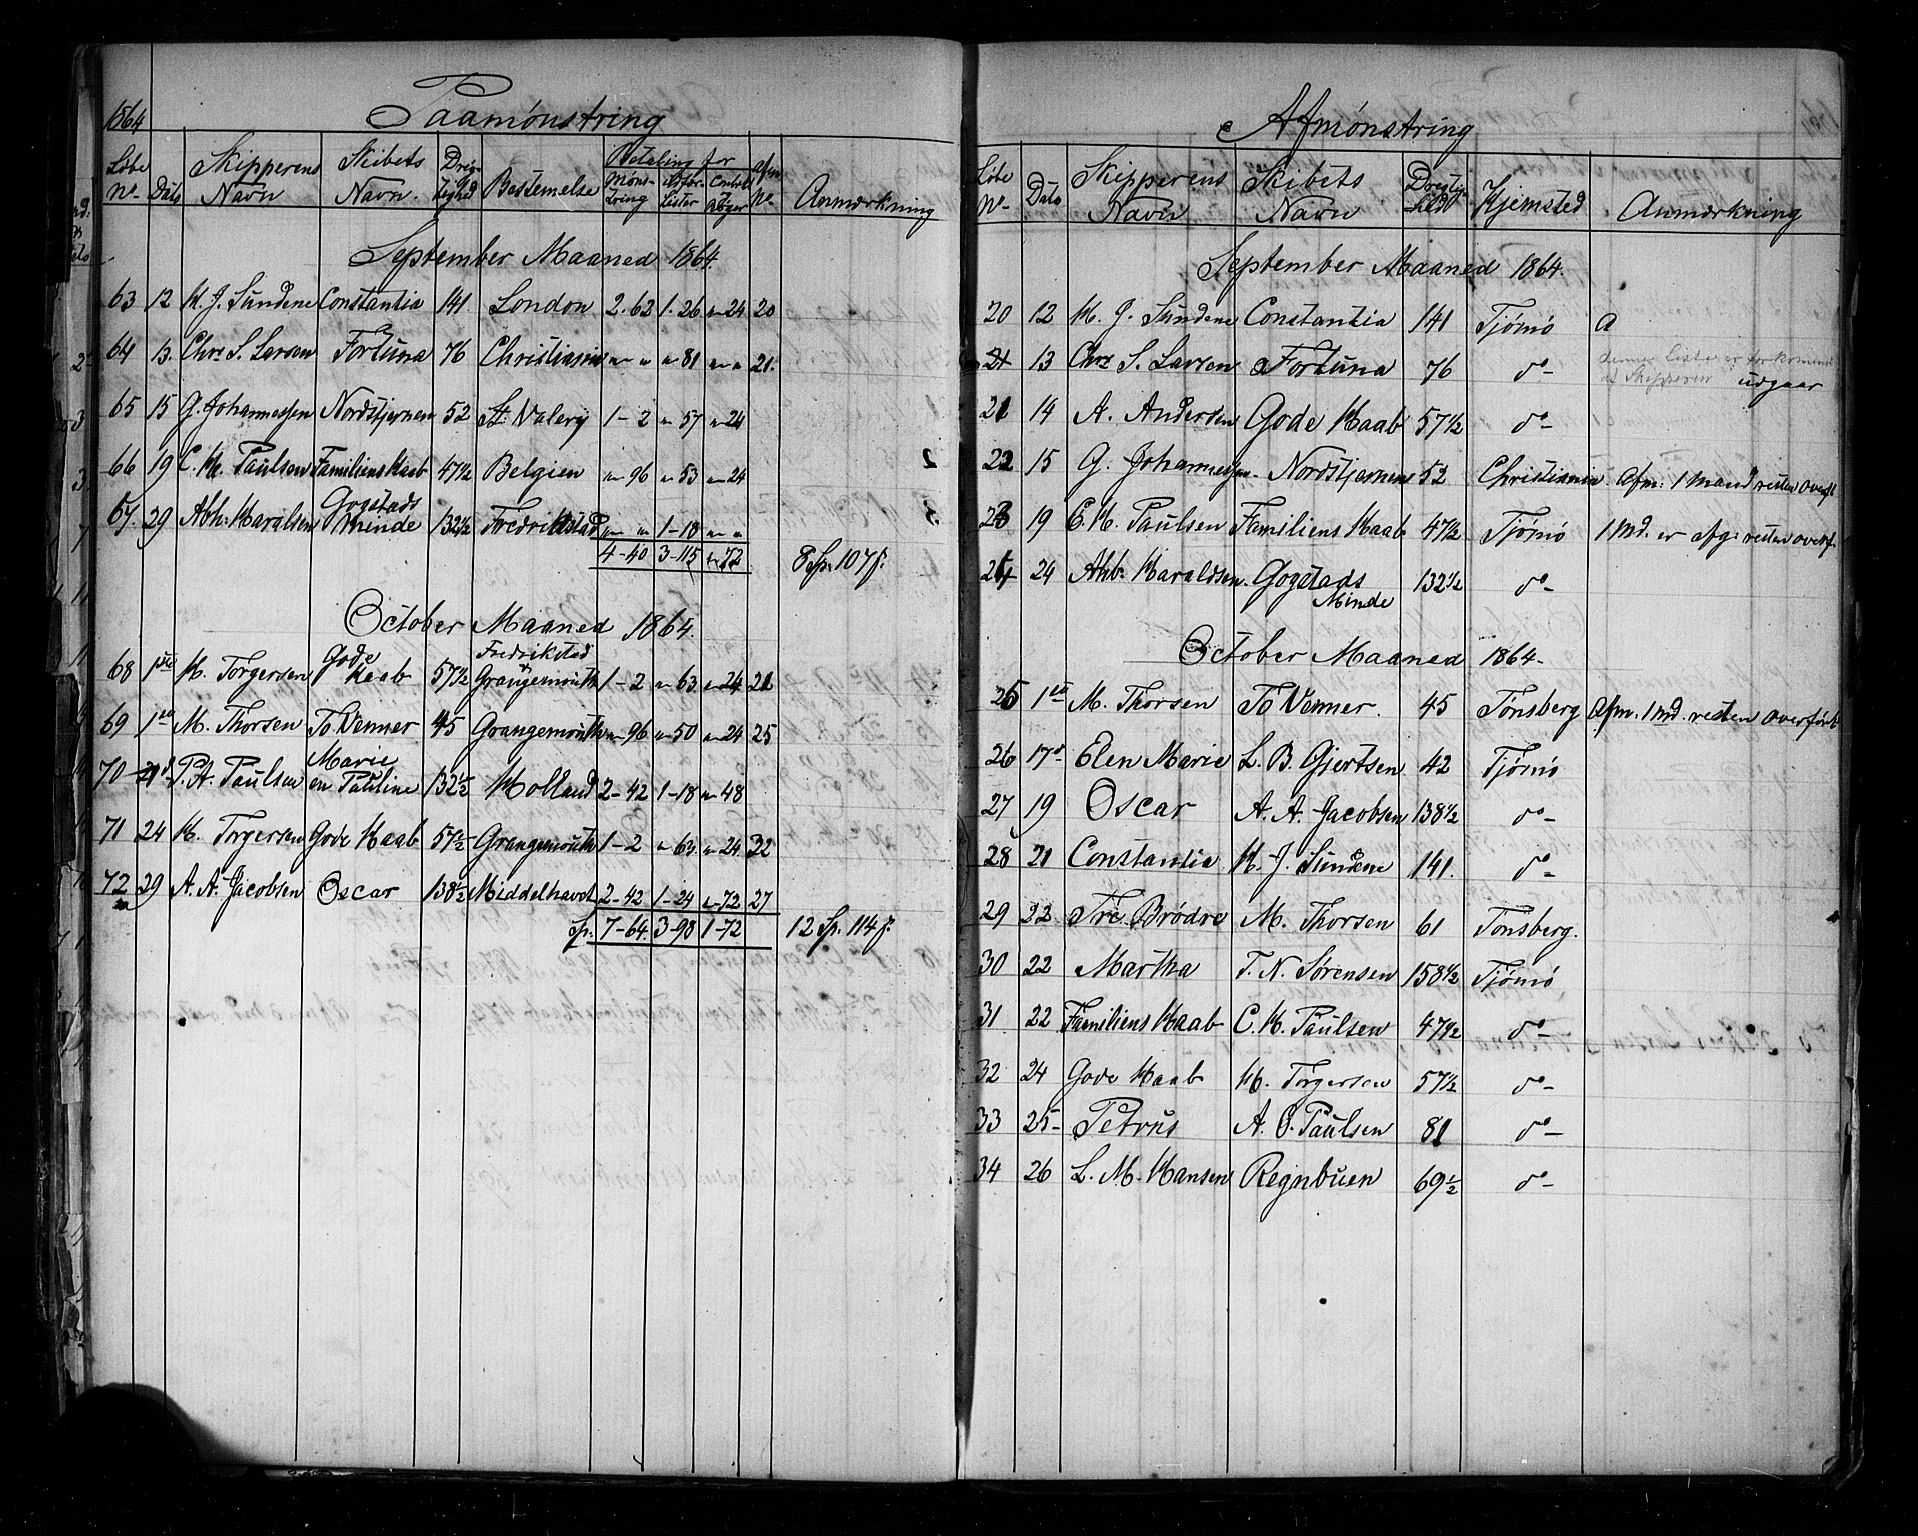 1864
Paamönstring
Löbe No. Dato Skipperens Navn Skibets Navn. Drægtighed Bestemelse Betaling for Mönstring Lister Afm No. Anmærkning
September Maaned 1864.
63 12 H. J. Sundene Constantia 141. London 2. 62 1. 26 " 24 20
64 13. Chrs S. Larsen Fortuna 76 Christiania " " " 81 " " 21.
65 15 G. Johannessen Nordstjernen 52 St. Valery 1 - 2 " 57 " 24
66 19 C. H. Paulsen Familiens Haab 47 1/2 Belgien " 96 " 53 " 24
67. 29 Abh. Haralsen Gogstads Minde 132 1/2 Fredrikstad " " 1 - 18 " "
4 - 40 3 - 115 " 72 8 Sp. 107 ſ.
October Maaned 1864.
68 1ste H. Torgersen Gode Haab 57 1/2 Fredrikstad & Grangemouth 1 - 2 " 63 " 24 21
69 1ste M. Thorsen To Venner 45 Grangemouth " 96 " 50 " 24 25
70 P. A. Paulsen Marie en Pauline 132 1/2 Holland 2 - 42 1 - 18 " 48
71 24 H. Torgersen Gode Haab 57 1/2 Grangemouth 1 - 2 " 63 " 24 32
72 29 A. A. Jacobsen Oscar 138 1/2 Middelhavet 2 - 42 1 - 24 " 72 27
Sp. 7 - 64. 3 - 98 1 - 72 12 Sp. 114 ſ.
Afmönstring
Löbe No. Dato Skipperens Navn Skibets Navn Drægtighed Hjemsted Anmærkning
September Maaned 1864.
20 12 H. J. Sundene Constantia 141 Tjömö a
21 13 Chrs S. Larsen Fortuna 76 do - denne Liste er forkommet af Skipperen udgaar
21 14 A. Andersen Gode Haab 57 1/2 do -
22 15 G. Johannessen Nordstjernen 52 Christiania Afm. 1 Mand resten overf
23 19 C. H. Paulsen Familiens Haab 47 1/2 Tjömö 1 Md. er Afg. resten overf.
24 24 Abh. Haraldsen. Gogstads Minde 132 1/2 do -
October Maaned 1864.
25 1ste M. Thorsen To Venner. 45 Tönsberg Afm. 1 Md. resten overfört
26 17d Elen Marie L. B. Gjertsen 42 Tjömö
27 19 Oscar A. A. Jacobsen 138 1/2 do -
28 21 Constantia H. J. Sundene 141. do -
29 22 Tre Brödre M. Thorsen 61 Tönsberg.
30 22 Martha T. N. Sörensen 158 1/2 Tjömö
31 22 Familiens Haab C. H. Paulsen 47 1/2 do -
32 24 Gode Haab H. Torgersen 57 1/2 do -
33 25 - Petrus A. O. Paulsen 81 do -
34 26 L. M. Hansen Regnbuen 69 1/2 do -